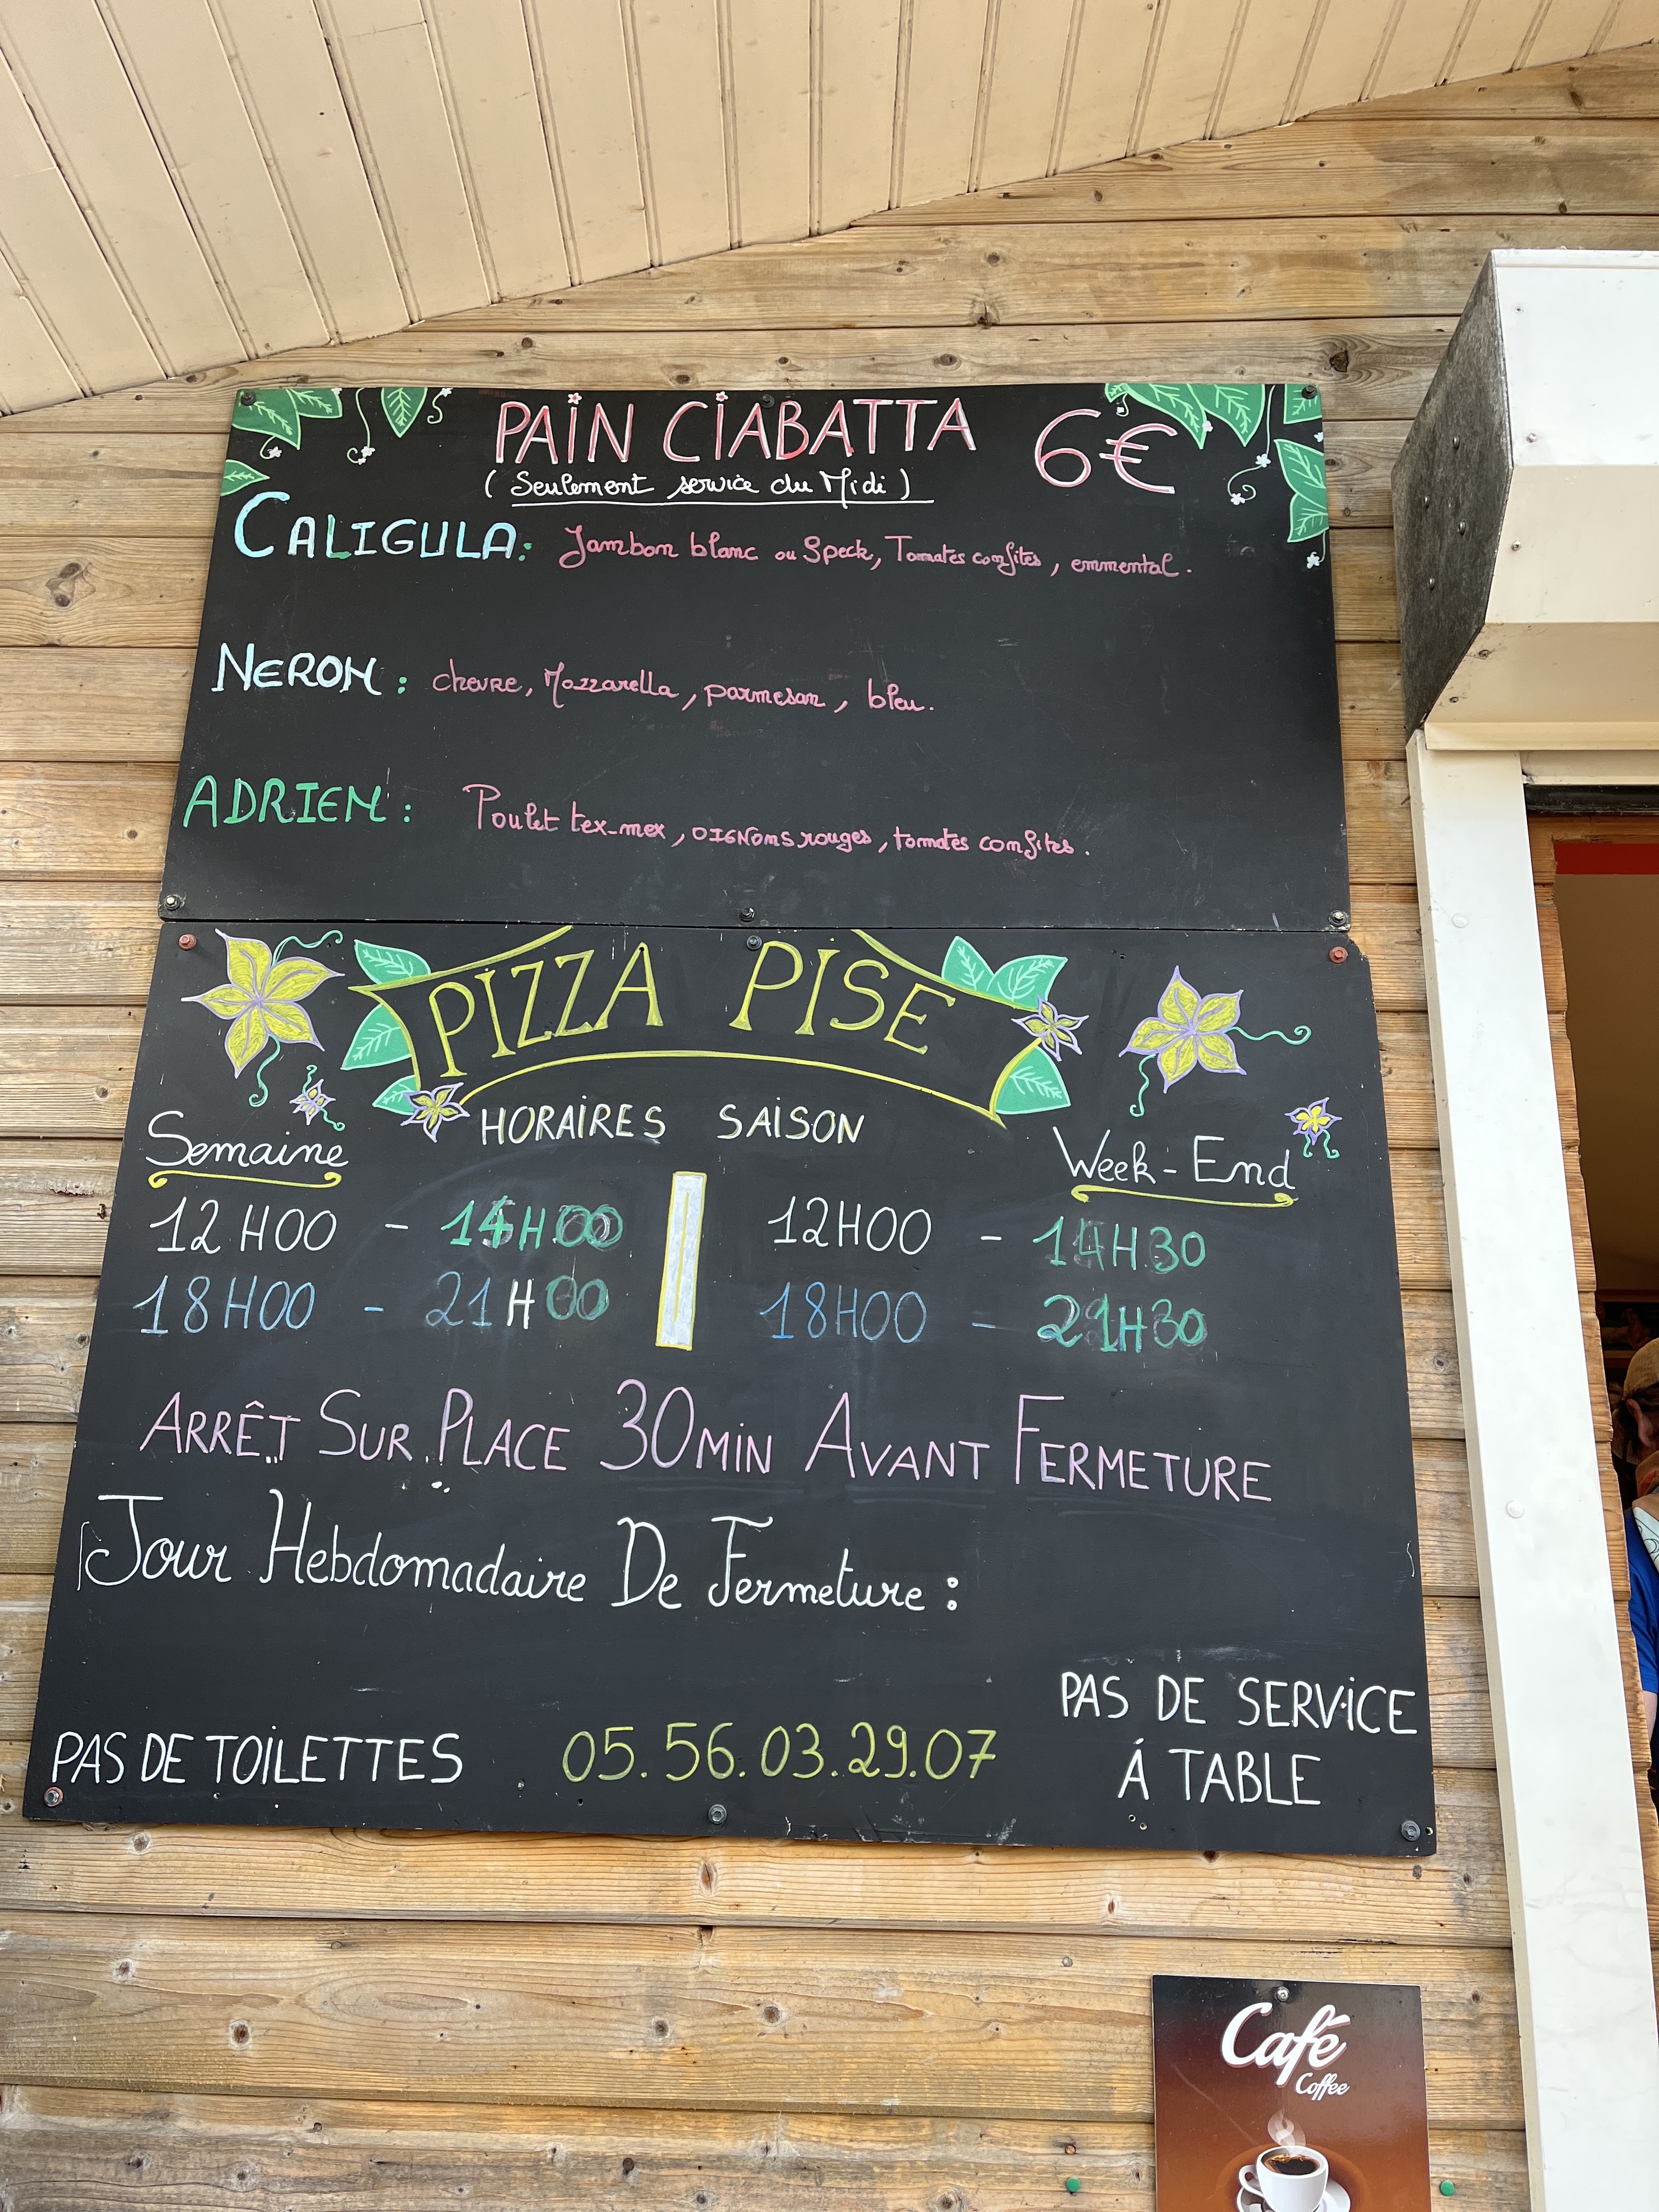 PAIN CIABATTA 6€
(Seulement service du Midi)
CALIGULA: Jambon blanc ou Speck, Tomates confites, emmental.
NERON: chevre, Mozzarella, parmesan, bleu.
ADRIEN: Poulet tex-mex, OIGNONS rouges, tomates confites.
PIZZA PISE
HORAIRES SAISON
Semaine
12H00 - 14H00
18H00 - 21H00
Week-End
12H00 - 14H30
18H00 - 21H30
ARRÊT SUR PLACE 30MIN AVANT FERMETURE
Jour Hebdomadaire De Fermeture :
PAS DE TOILETTES
05.56.03.29.07
PAS DE SERVICE
Á TABLE
Café
Coffee